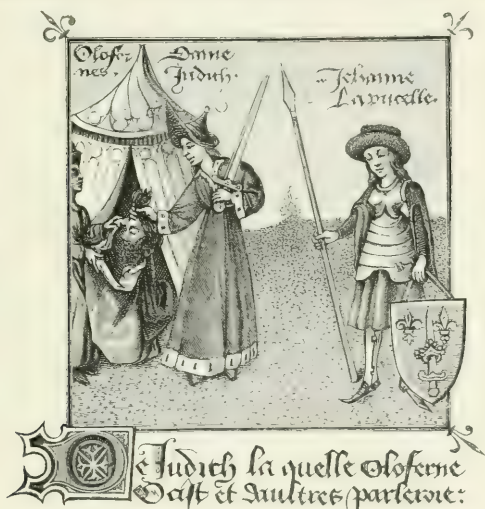 Olofer
nes.
Dame
Judith.
Jehanne
La pucelle.
De Judith la quelle Oloferne
Ocist et daultres parleroie: